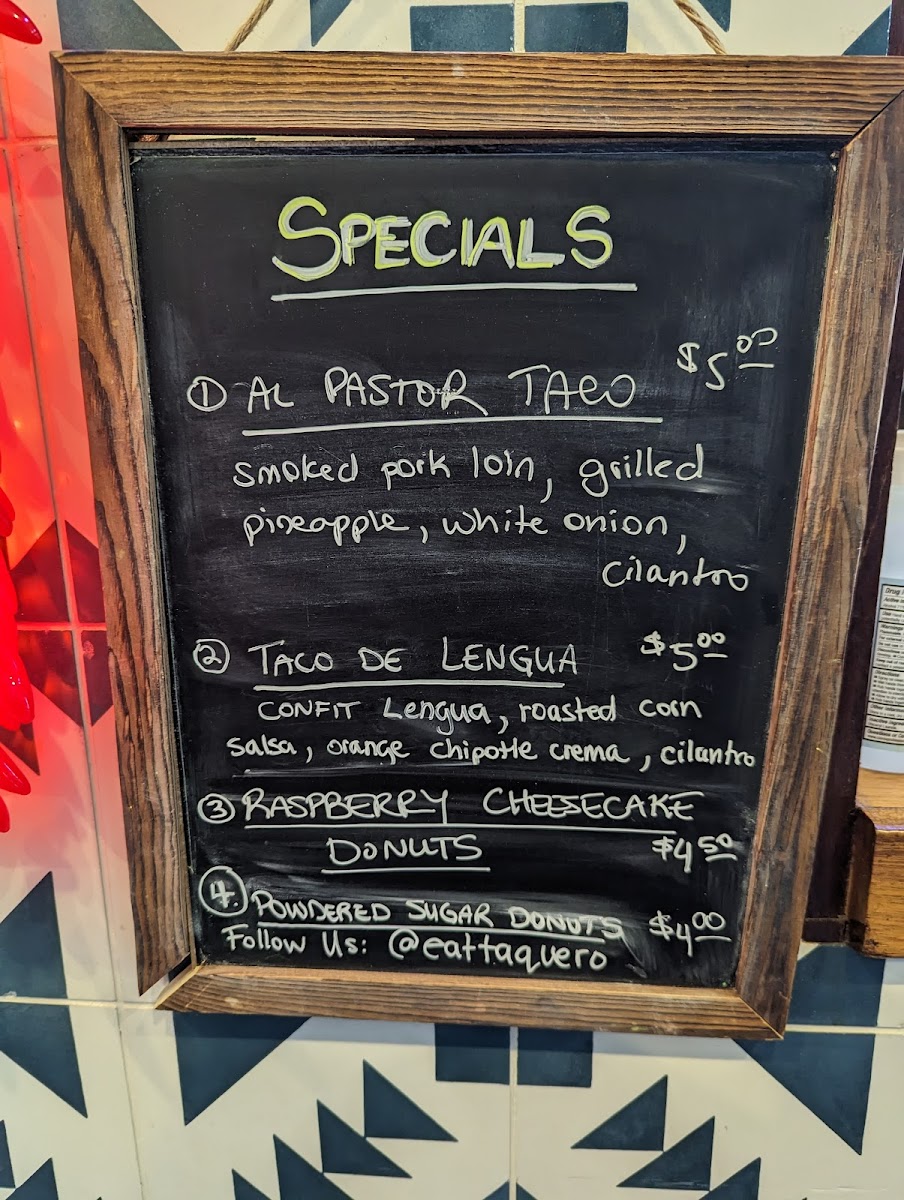 SPECIALS
① AL PASTOR TACO $5.00
smoked pork loin, grilled
pineapple, white onion,
cilantro
② TACO DE LENGUA $5.00
CONFIT Lengua, roasted corn
salsa, orange chipotle crema, cilantro
③ RASPBERRY CHEESECAKE
DONUTS $4.50
4. POWDERED SUGAR DONUTS $4.00
Follow Us: @eattaquero